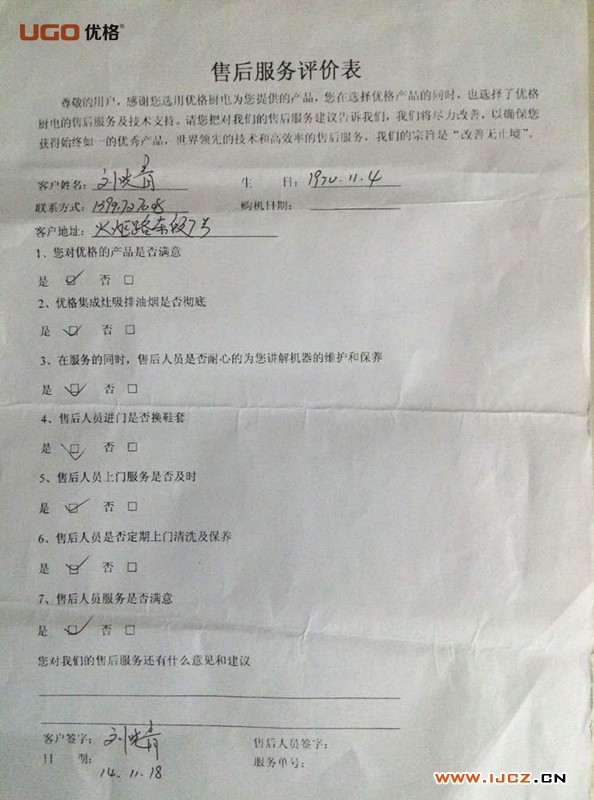 UGO优格
售后服务评价表
尊敬的用户，感谢您选用优格厨电为您提供的产品，您在选择优格产品的同时，也选择了优格
厨电的售后服务及技术支持。请您把对我们的售后服务建议告诉我们，我们将尽力改善，以确保您
获得始终如一的优秀产品，世界领先的技术和高效率的售后服务，我们的宗旨是“改善无止境”。
客户姓名： 刘 生 日：1970.11.4
联系方式： 购机日期：
客户地址： 路 号
1、您对优格的产品是否满意
是 ☑ 否 □
2、优格集成灶吸排油烟是否彻底
是 ☑ 否 □
3、在服务的同时，售后人员是否耐心的为您讲解机器的维护和保养
是 ☑ 否 □
4、售后人员进门是否换鞋套
是 ☑ 否 □
5、售后人员上门服务是否及时
是 ☑ 否 □
6、售后人员是否定期上门清洗及保养
是 ☑ 否 □
7、售后人员服务是否满意
是 ☑ 否 □
您对我们的售后服务还有什么意见和建议
客户签字： 刘 售后人员签字：
日 期： 服务单号：
14.11.18
www.IJCZ.CN